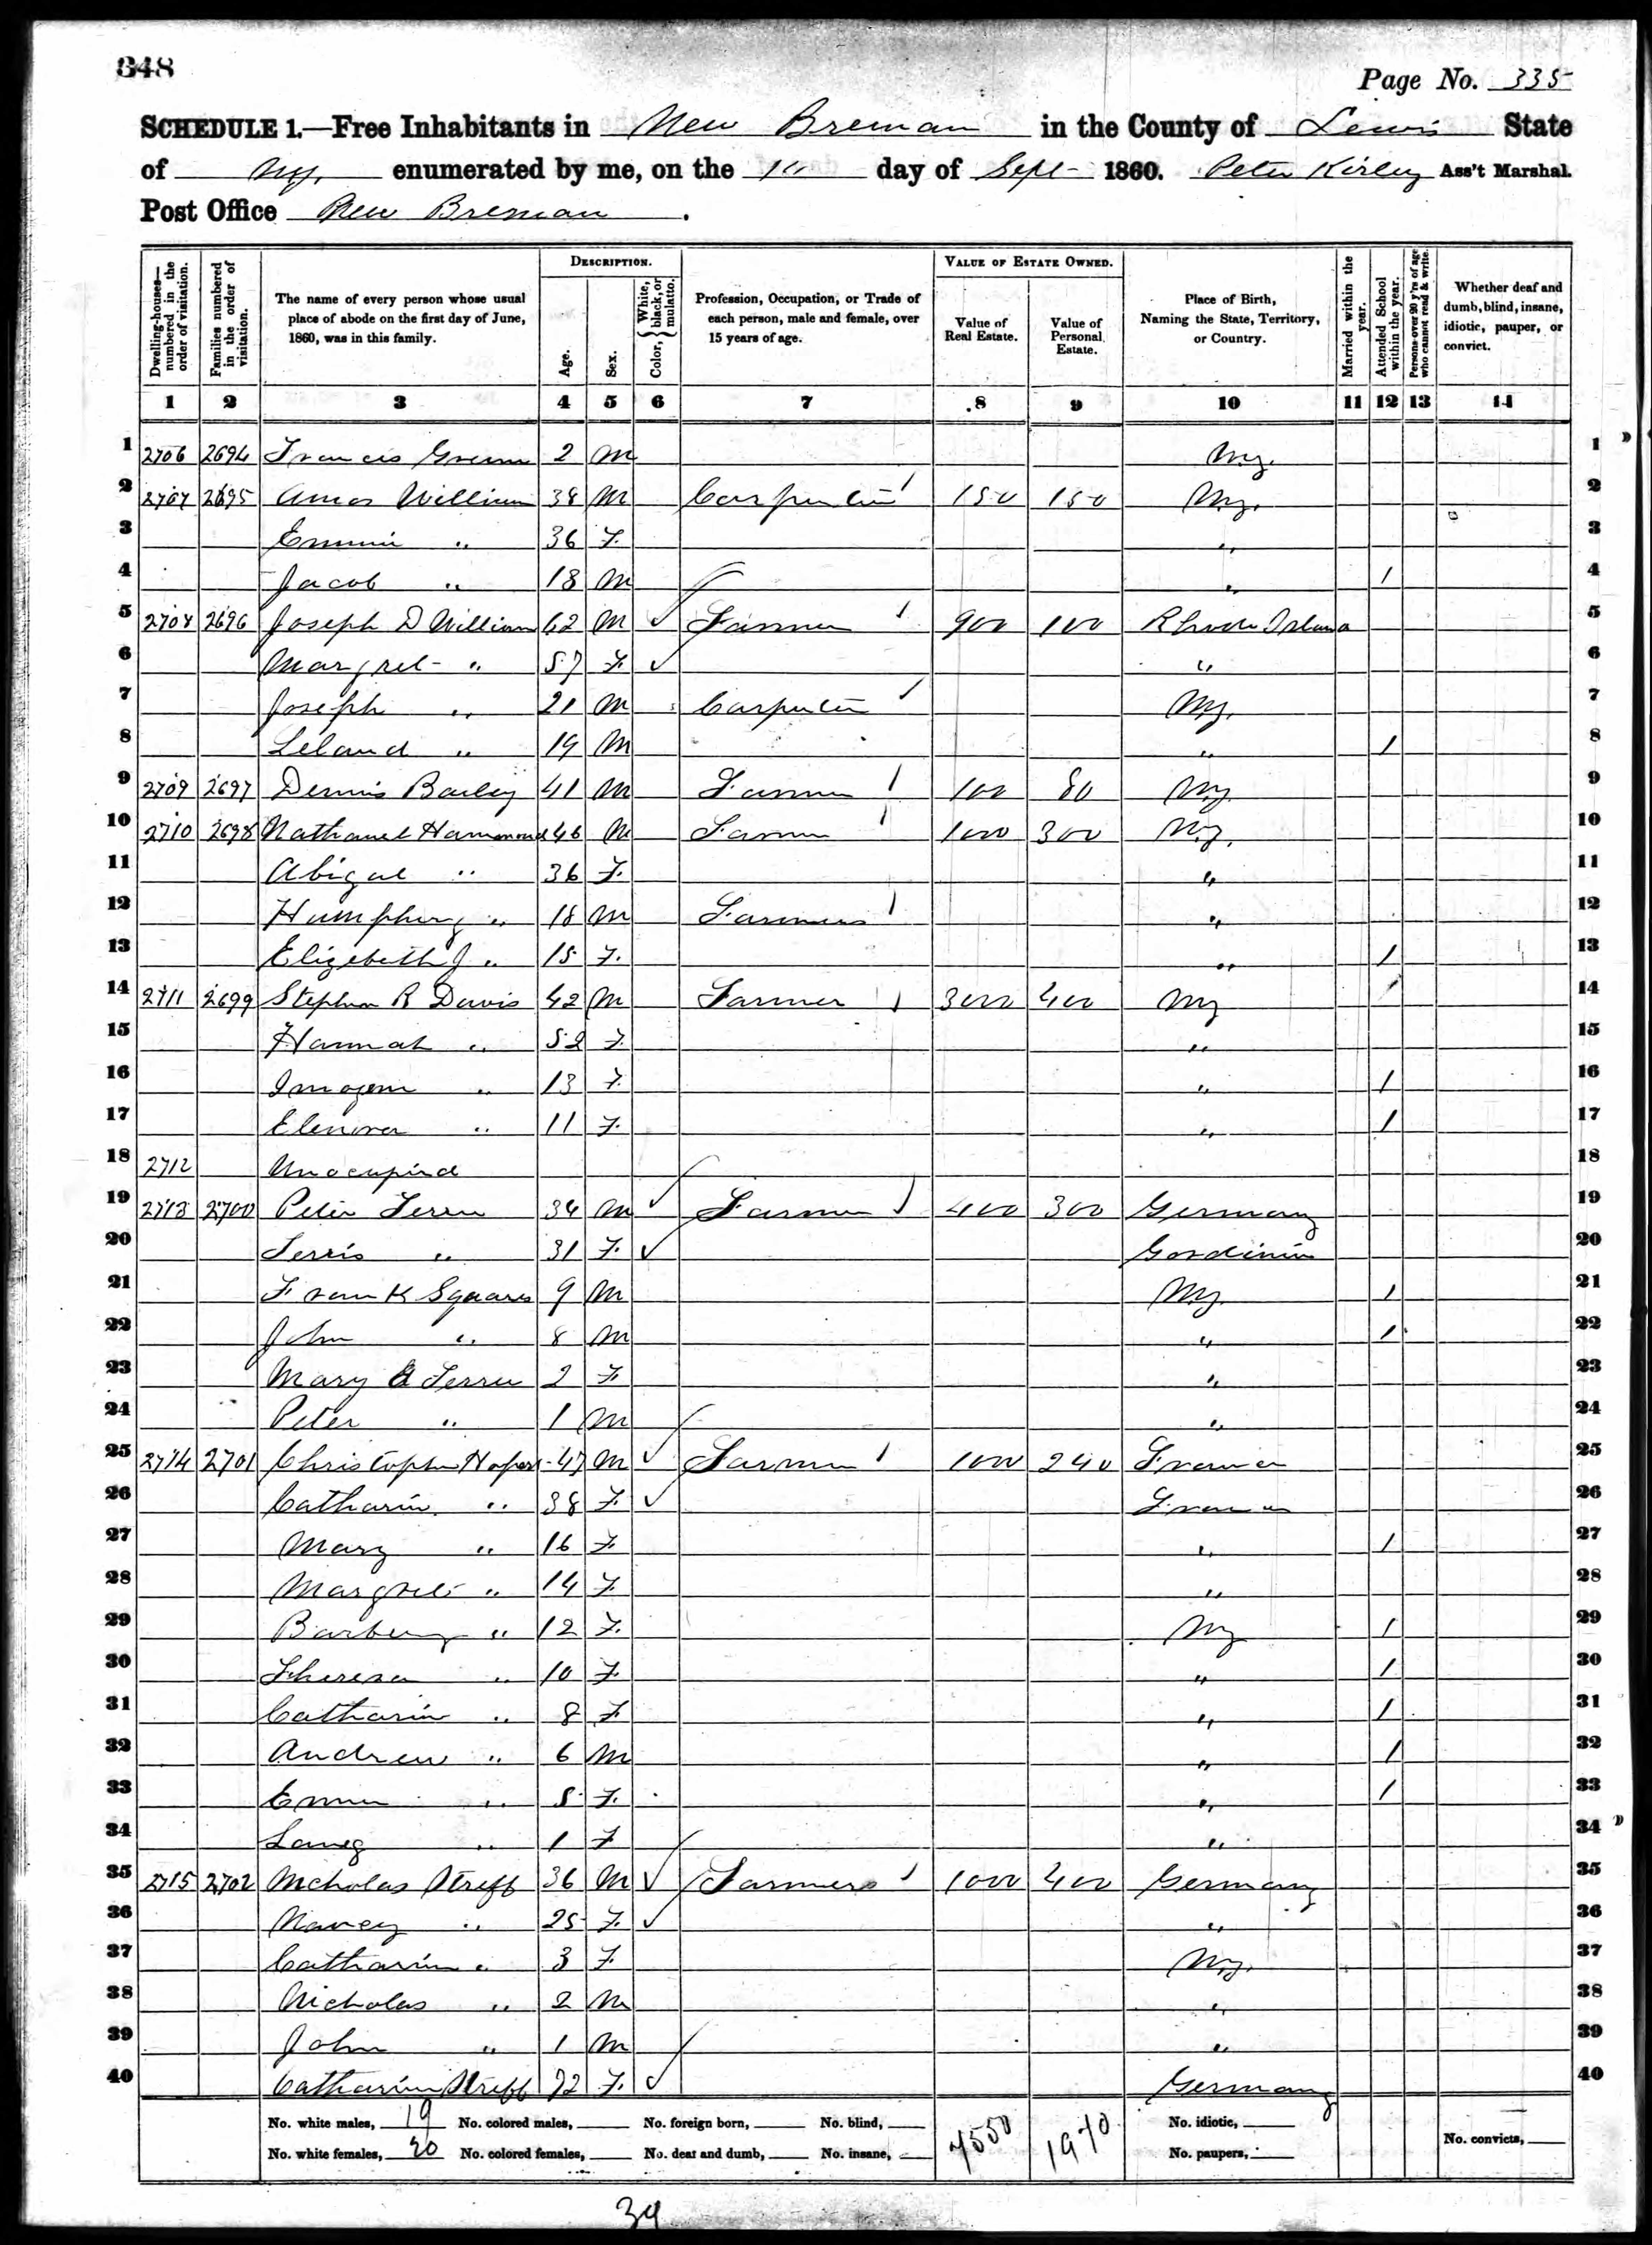 348
Page No. 335
SCHEDULE 1.—Free Inhabitants in New Breman in the County of Lewis State
of Ny. enumerated by me, on the day of Sept 1860. Peter Kirley Ass't Marshal.
Post Office New Breman.
Dwelling-houses—numbered in the order of visitation. Families numbered in the order of visitation. The name of every person whose usual place of abode on the first day of June, 1860, was in this family. DESCRIPTION. Age. Sex. Color, {White, black, or mulatto. Profession, Occupation, or Trade of each person, male and female, over 15 years of age. VALUE OF ESTATE OWNED. Value of Real Estate. Value of Personal Estate. Place of Birth, Naming the State, Territory, or Country. Married within the year. Attended School within the year. Persons over 20 y'rs of age who cannot read & write. Whether deaf and dumb, blind, insane, idiotic, pauper, or convict.
1 2 3 4 5 6 7 8 9 10 11 12 13 14
1 2706 2694 Francis 2 M Ny. 1
2 2707 2695 Amos William 38 M Carpenter 150 150 Ny. 2
3 " 36 F. " 3
4 Jacob " 18 M " / 4
5 2708 2696 Joseph D William 62 M ✓ Farmer 900 100 Rhode Island 5
6 Margret " 57 F. ✓ " 6
7 Joseph " 21 M Carpenter Ny. 7
8 Leland " 19 M " / 8
9 2709 2697 Dennis Bailey 41 M Farmer 100 80 Ny 9
10 2710 2698 Nathanel Hammond 46 M Farmer 1000 300 Ny. 10
11 Abigal " 36 F. " 11
12 Humphery " 18 M Farmers " 12
13 Elizebeth J " 15 F. " / 13
14 2711 2699 Stephen R Davis 42 M Farmer 3000 400 Ny / 14
15 Hannah " 52 F. " 15
16 Imogene " 13 F. " / 16
17 Elenora " 11 F. " / 17
18 2712 Unocupied 18
19 2713 2700 Peter 34 M ✓ Farmer 400 300 Germany 19
20 " 31 F. ✓ 20
21 Frank Squares 9 M Ny. / 21
22 John " 8 M " / 22
23 Mary 2 F. " 23
24 Peter " 1 M " 24
25 2714 2701 Christopher 47 M ✓ Farmer 1000 240 France 25
26 Catharin " 38 F. ✓ France 26
27 Mary " 16 F. " / 27
28 Margret " 14 F. " 28
29 " 12 F. Ny / 29
30 Theresa " 10 F. " / 30
31 Catharin " 8 F " / 31
32 Andrew " 6 M " / 32
33 " 5 F. " / 33
34 " 1 F " 34
35 2715 2702 Nicholas Streff 36 M ✓ Farmers 1000 400 Germany 35
36 Nancy " 25 F. ✓ " 36
37 Catharin " 3 F. Ny. 37
38 Nicholas " 2 M " 38
39 John " 1 M " 39
40 Catharin Streff 72 F. ✓ Germany 40
No. white males, 19 No. colored males, No. foreign born, No. blind, 7550 1970 No. idiotic,
No. white females, 20 No. colored females, No. deaf and dumb, No. insane, No. paupers, No. convicts,
39